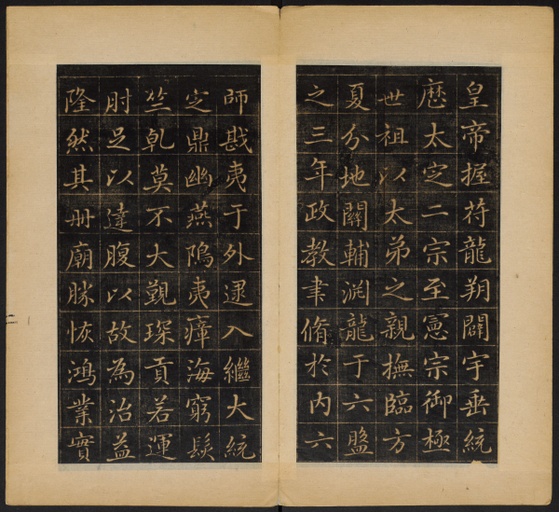 皇帝握符龍朔闢宇垂統
歷太定二宗至憲宗御極
世祖以太弟之親撫臨方
夏分地關輔淵龍于六盤
之三年政教聿脩於內六
師戡夷于外逮入繼大統
定鼎幽燕隝夷瘴海窮髮
竺乹莫不大觐琛貢若運
肘足以達腹以故為治益
隆然其册廟勝恢鴻業實